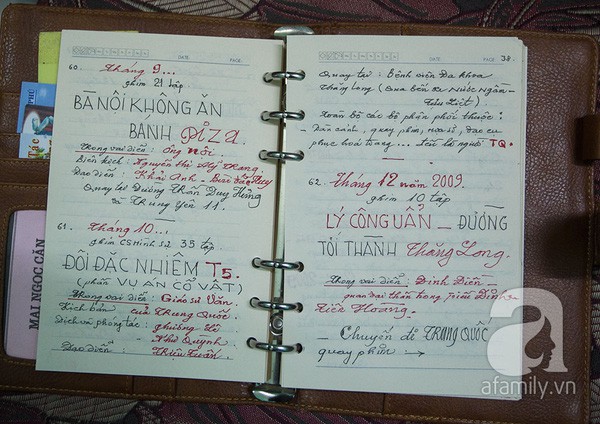 DATE: PAGE:
60. Tháng 9...
phim 21 tập
BÀ NỘI KHÔNG ĂN
BÁNH PIZA.
Trong vai diễn: Ông Nội.
Biên kịch: Nguyễn Thị
Đạo diễn: Khải Anh - Bùi
Quay tại Đường Trần Duy Hưng
Trung Yên 11.
61. Tháng 10...
phim CSHình sự 35 tập
ĐỘI ĐẶC NHIỆM T5.
(phần VỤ ÁN CỔ VẬT)
Trong vai diễn: Giáo sư Văn.
Kịch bản của Trung Quốc.
Dịch và phóng tác: Phương
Như Quỳnh
Đạo diễn: Triệu Tuấn.
DATE: PAGE: 38
Quay tại: Bệnh viện Đa khoa
Thăng Long (Qua bến xe Nước Ngầm-
Toàn bộ các bộ phận phối thuộc:
Dàn cảnh, quay phim, Họa sĩ, đạo cụ
phục hoá trang... là người TQ.
62. Tháng 12 năm 2009.
phim 10 tập
LÝ CÔNG UẨN - ĐƯỜNG
TỚI THÀNH Thăng Long.
Trong vai diễn: Đinh Điền -
quan đại thần trong triều Đinh-
Tiên Hoàng.
- Chuyến đi TRUNG QUỐC
quay phim →
MAI NGỌC CĂN
PHÚ
a
afamily.vn